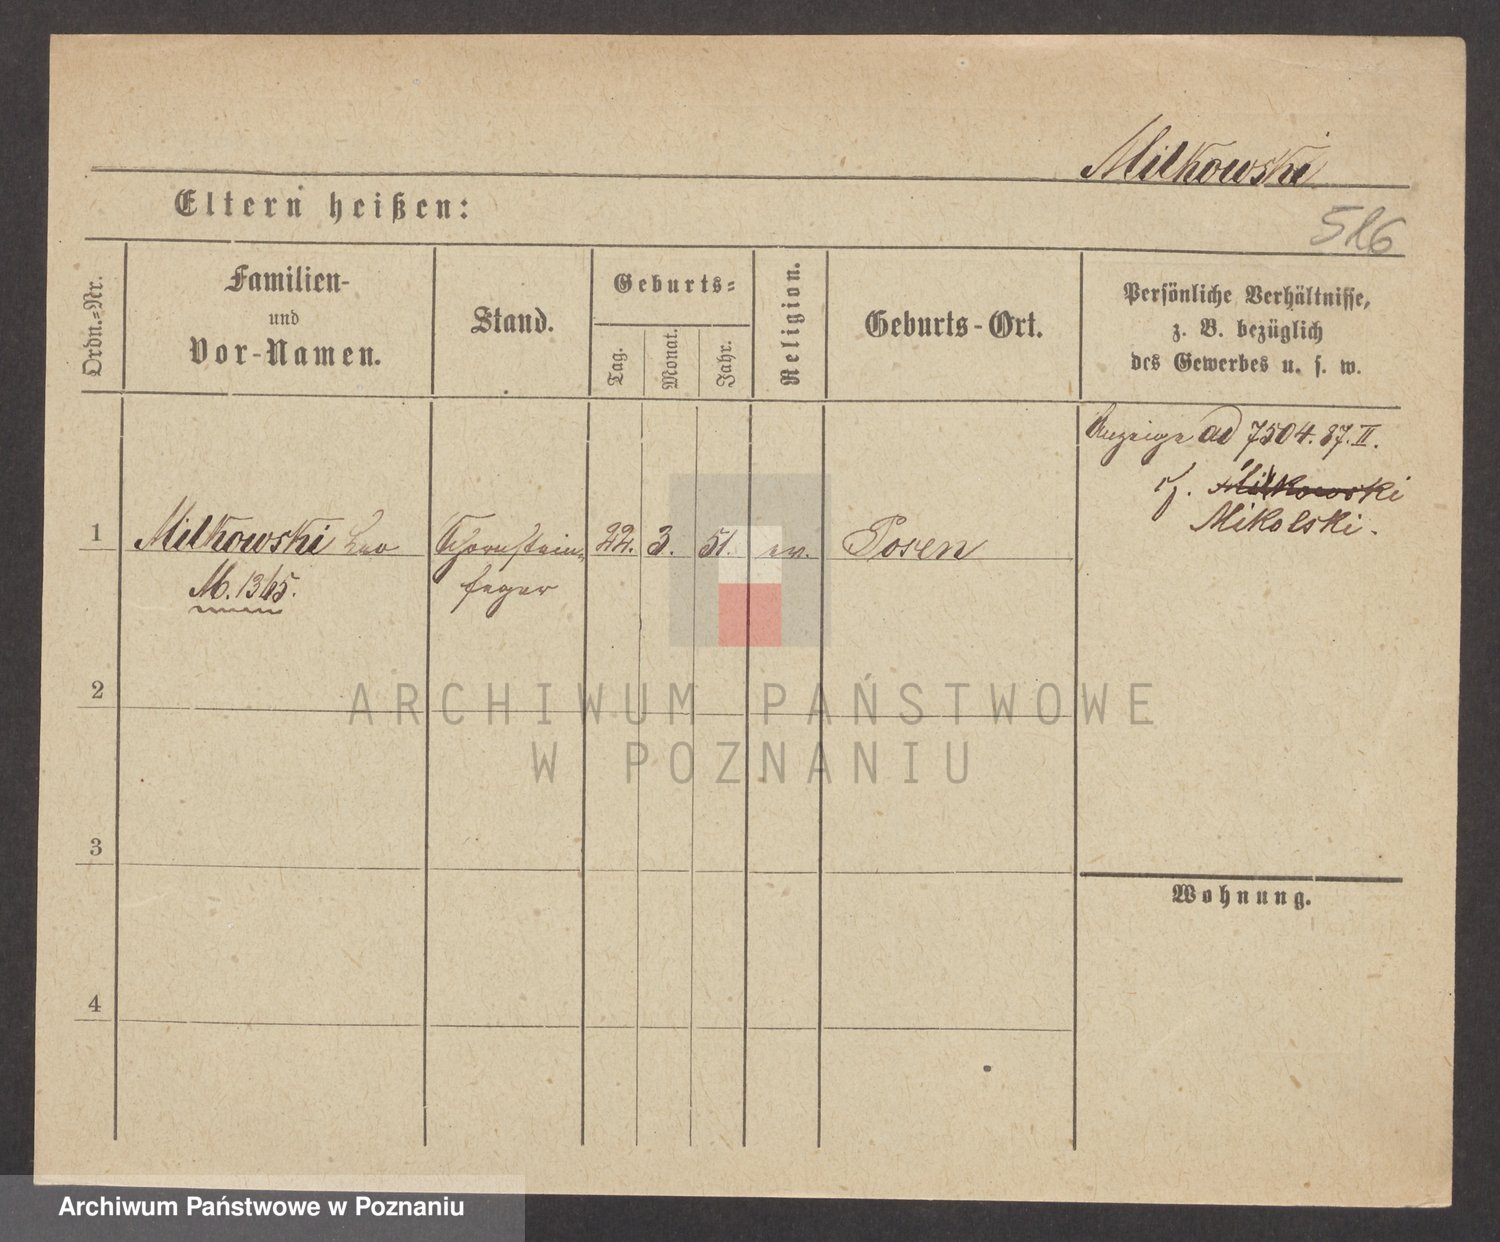 Milkowski
Eltern heißen:
516
Ordn.-Nr.
Familien-
und
Vor-Namen.
Stand.
Geburts-
Tag.
Monat.
Jahr.
Religion.
Geburts-Ort.
Persönliche Verhältnisse,
z. B. bezüglich
des Gewerbes u. s. w.
Anzeige ad 7504. 87. II.
cf. Milkowski
Mikolski.
1 Milkowski Leo Schornstein- 22. 3. 51. ev. Posen
M. 1365. feger
2
3
4
Wohnung.
ARCHIWUM PAŃSTWOWE
W POZNANIU
Archiwum Państwowe w Poznaniu